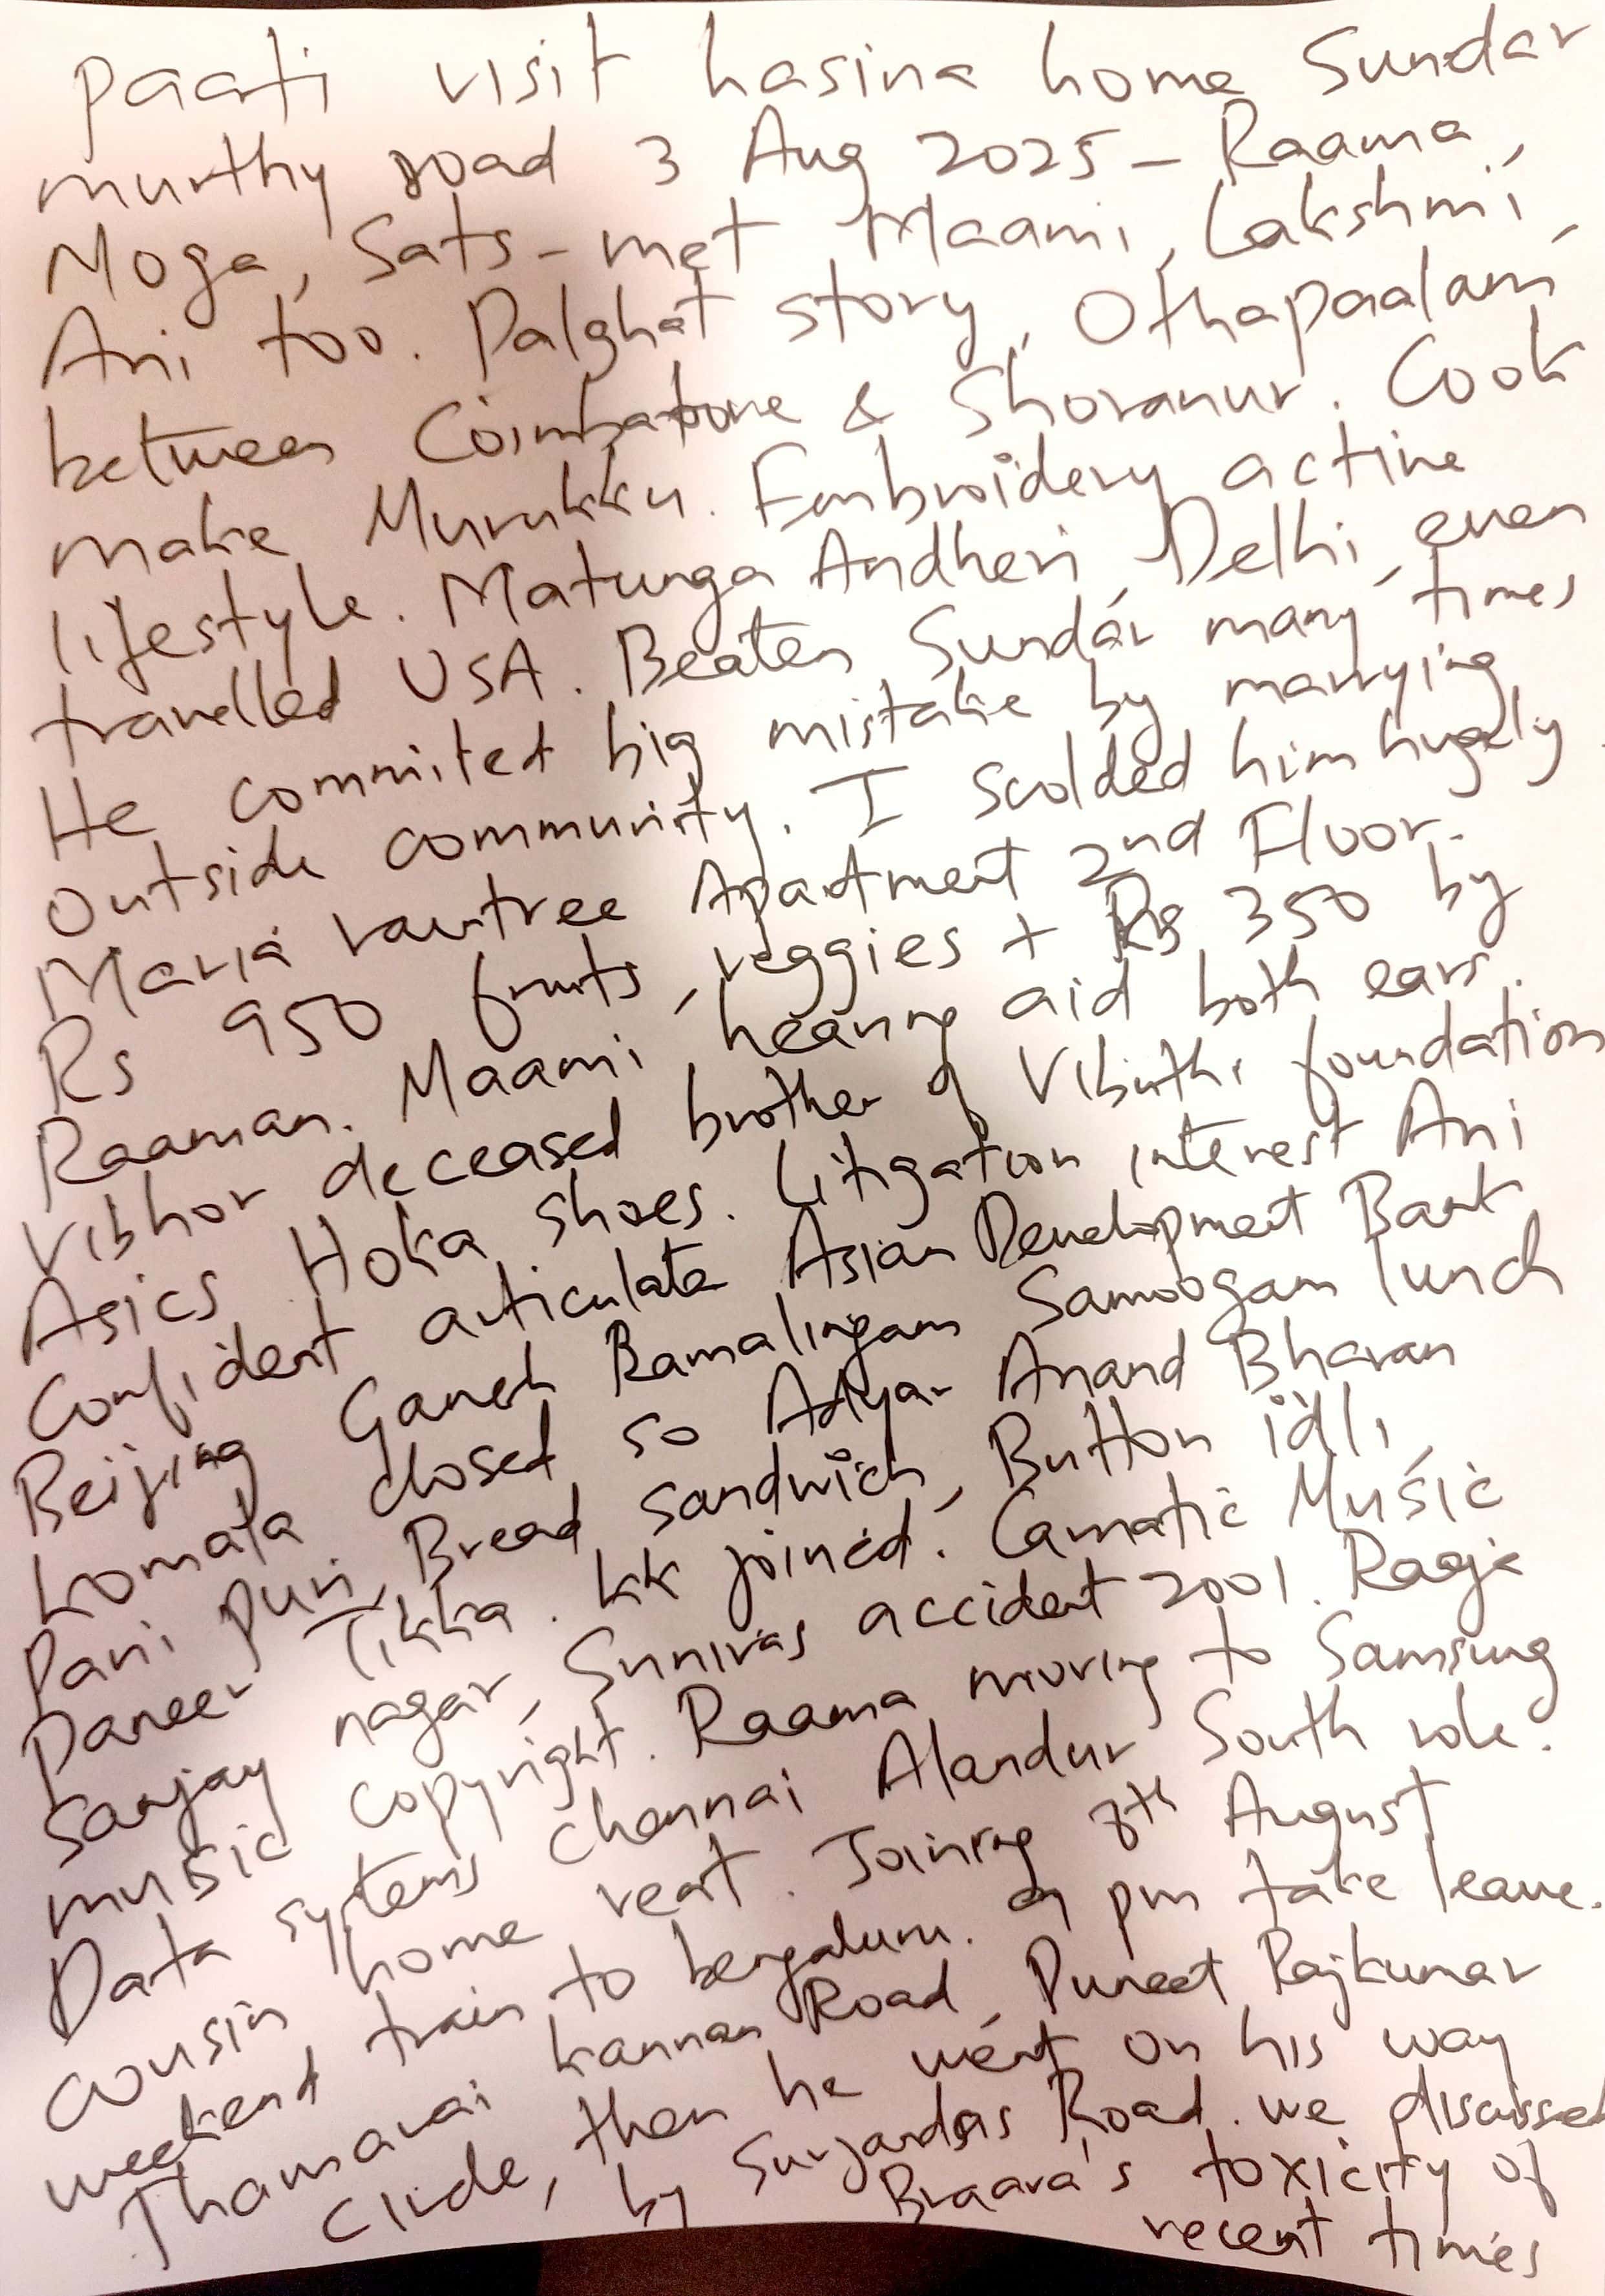 Paati visit hasina home Sundar
murthy road 3 Aug 2025 - Raama,
Moga, Sats - met Maami, Lakshmi,
Ani too. Palghat story, Othapaalam,
between Coimbatore & Shoranur. Cook
make Murukku. Embroidery active
lifestyle. Matunga Andheri Delhi, even
travelled USA. Beaten Sundar many times
He commited big mistake by marrying
outside community. I scolded him hugely.
Maria rawtree Apartment 2nd Floor.
Rs 950 fruits, veggies + Rs 350 by
Raaman. Maami hearing aid both ears.
Vibhor deceased brother of Vibuthi foundation
Asics Hoka shoes. Litigation interest Ani
Confident articulate Asian Development Bank
Beijing Ganesh Ramalingam Samoogam lunch
komala closed so Adyar Anand Bhavan
Pani puri, Bread sandwich, Button idli,
Paneer Tikka. KK joined. Carnatic Music
Sanjay nagar, Srinivas accident 2001. Raaja
music copyright. Raama moving to Samsung
Data sytems Chennai Alandur South role.
cousin home rent. Joining 8th August
weekend train to bengaluru. 9 pm take leave.
Thamarai kannan Road, Puneet Rajkumar
Circle, then he went on his way
by Surjandas Road. we discussed
Braava's toxicity of
recent times